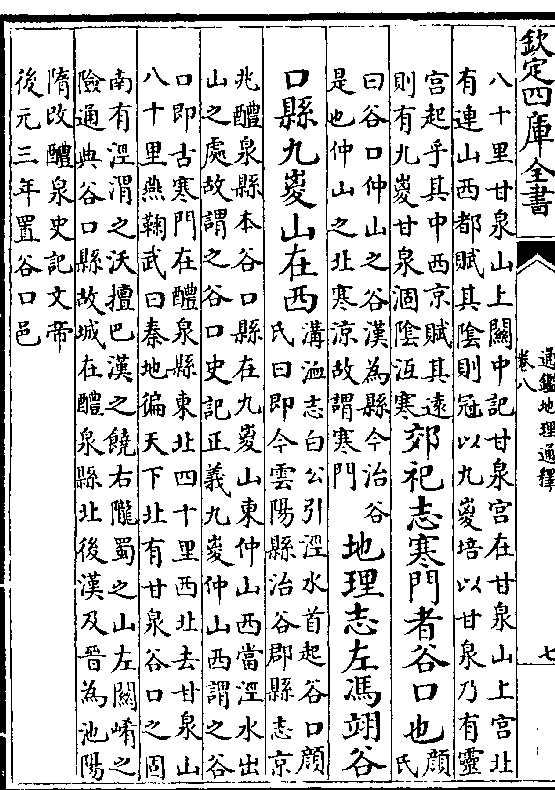 欽定四庫全書
通鑑地理通釋
卷八
七
八十里甘泉山上關中記甘泉宮在甘泉山上宮北
有連山西都賦其陰則冠以九嵏培以甘泉乃有靈
宮起乎其中西京賦其遠
則有九嵏甘泉涸陰沍寒
郊祀志寒門者谷口也
顔
氏
曰谷口仲山之谷漢為縣今治谷
是也仲山之北寒涼故謂寒門
地理志左馮翊谷
口縣九嵏山在西
溝洫志白公引涇水首起谷口顔
氏曰即今雲陽縣治谷郡縣志京
兆醴泉縣本谷口縣在九嵏山東仲山西當涇水出
山之處故謂之谷口史記正義九嵏仲山西謂之谷
口即古寒門在醴泉縣東北四十里西北去甘泉山
八十里燕鞠武曰秦地徧天下北有甘泉谷口之固
南有涇渭之沃擅巴漢之饒右隴蜀之山左關崤之
險通典谷口縣故城在醴泉縣北後漢及晉為池陽
隋改醴泉史記文帝
後元三年置谷口邑